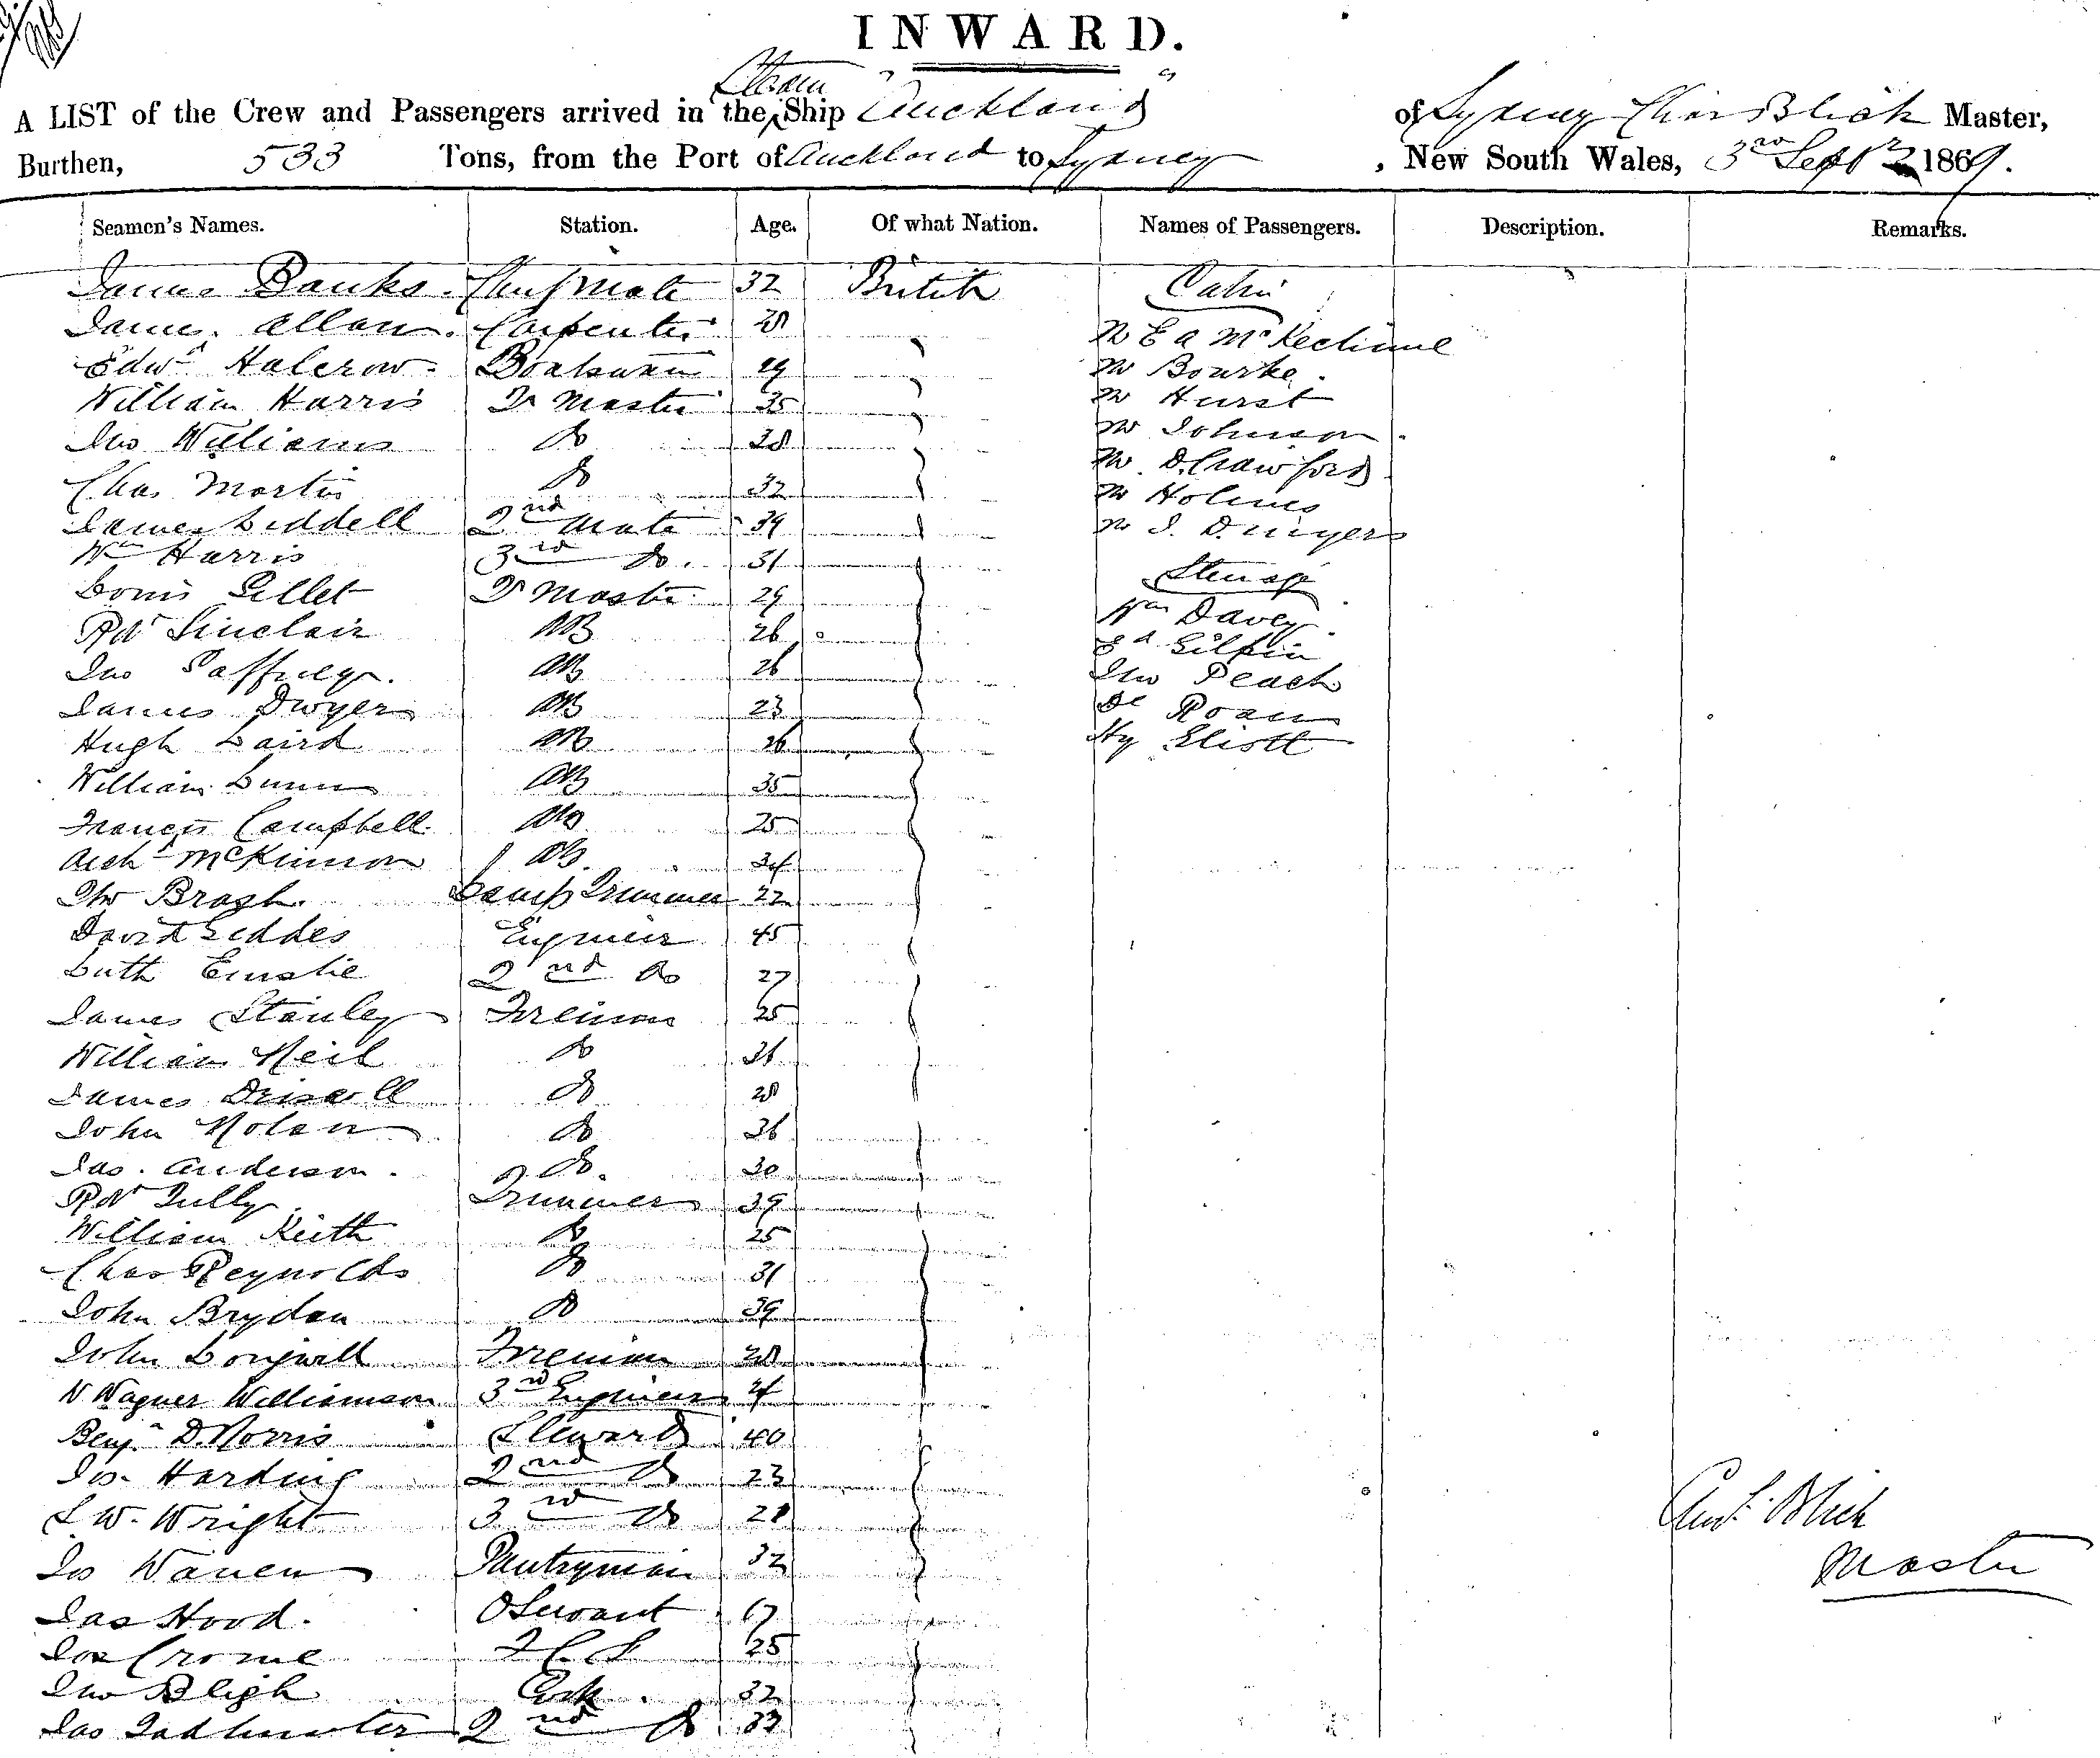 INWARD.
Steam
A LIST of the Crew and Passengers arrived in the Ship "Auckland" of Sydney Master,
Burthen, 533 Tons, from the Port of Auckland to Sydney, New South Wales, 3rd Septr 1869.
Seamen's Names. Station. Age. Of what Nation. Names of Passengers. Description. Remarks.
James Banks Chief Mate 32 British Cabin
James Allan Carpenter 28
Mr E A McKechnie
Edwd Halcrow Boatswain 29 Mr Bourke
William Harris Qr Master 35 Mr Hurst
Jno Williams Do 38 Mr Johnson
Chas Martin Do 32 Mr D. Crawford
Mr Holmes
James Liddell 2nd Mate 39 Mr J.
Wm Harris 3rd Do. 31 Steerage
Louis Qr Master 29 Wm Davey
Rdt Sinclair AB 26 Gilpin
Jno AB 26 Jno Peach
James Dwyer AB 23 Roan
Hugh Laird AB 26 Hy Eliott
William AB 35
Francis Campbell AB 25
Archd McKinnon AB 34
Jno Lamp Trimmer 22
David Geddes Engineer 45
2nd Do 27
James Stanley Fireman 25
William Neil Do 36
James Driscoll Do 28
John Nolan Do 36
Jas. Anderson Do. 30
Rdt Tully Trimmer 39
William Keith Do 25
Chas Reynolds Do 31
John Brydon Do 39
John Fireman 28
Wagner Williamson 3rd Engineer 24
Benjn D. Norris Steward 40
Jos. Harding 2nd Do 23
S. W. Wright 3rd Do 28
Jos Warren Pantryman 32
Jas Hood. O Servant 17
Jos Crome F C S 25
Jno Bligh Cook 32
Jas Todhunter 2nd Do 33
Master